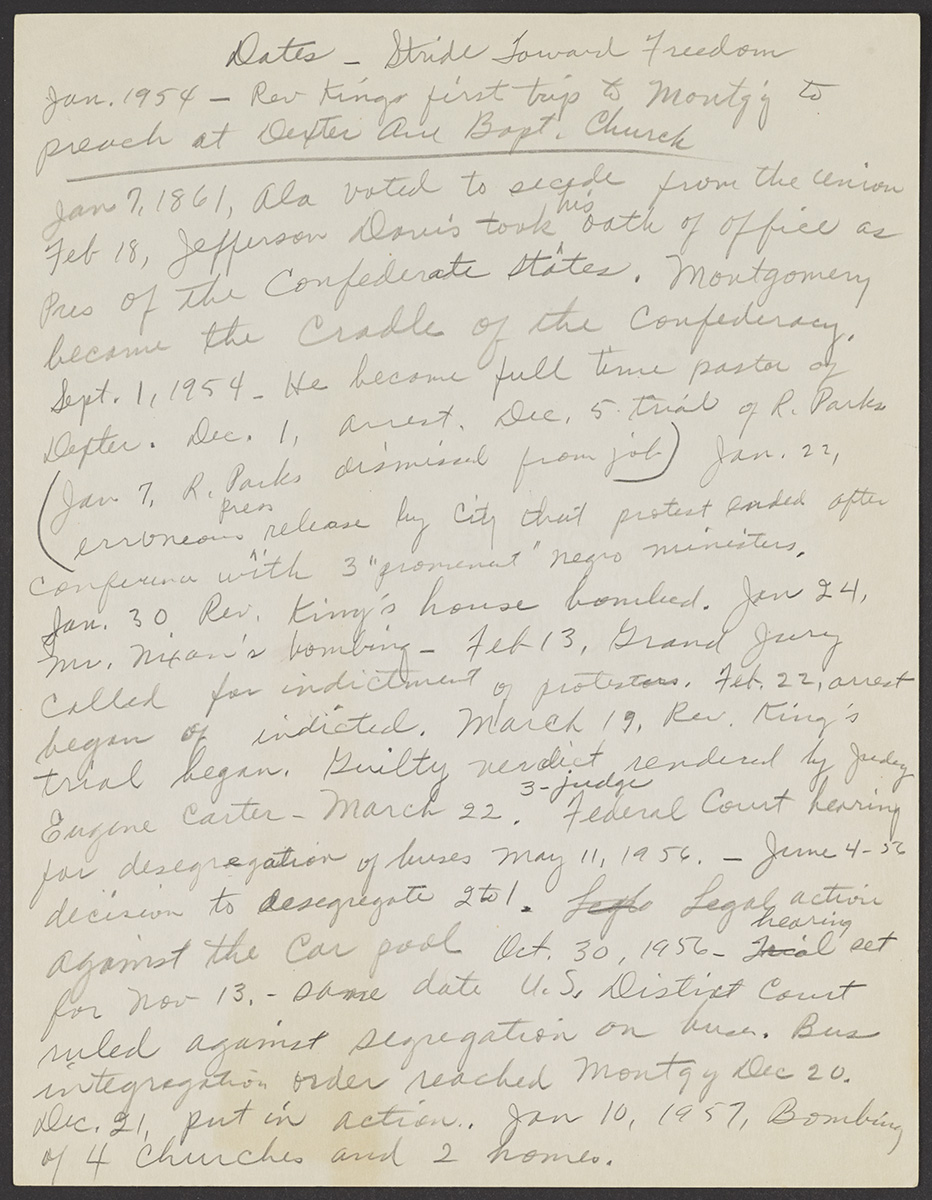 Dates - Stride Toward Freedom
Jan. 1954 - Rev Kings first trip to Montg'y to
preach at Dexter Ave Bapt. Church
Jan 7, 1861, Ala voted to secede from the union
Feb 18, Jefferson Davis took his oath of office as
Pres of the Confederate States. Montgomery
became the Cradle of the Confederacy.
Sept. 1, 1954 - He became full time pastor of
Dexter. Dec. 1, arrest. Dec. 5 trial of R. Parks
(Jan 7, R. Parks dismissed from job) Jan. 22,
erroneous press release by City that protest ended after
conference with 3 "prominent" negro ministers.
Jan. 30 Rev. King's house bombed. Jan 24,
Mr. Nixon's bombing - Feb 13, Grand Jury
called for indictment of protesters. Feb. 22, arrest
began of indicted. March 19, Rev. King's
trial began. Guilty verdict rendered by Judey
Eugene Carter - March 22. 3-judge Federal Court hearing
for desegregation of buses May 11, 1956. - June 4-56
decision to desegregate 2 to 1. Legal action
against the Car pool Oct. 30, 1956 - trial hearing set
for Nov 13. - same date U.S. District Court
ruled against segregation on buses. Bus
integragation order reached Montgy Dec 20.
Dec. 21, put in action. Jan 10, 1957, Bombing
of 4 Churches and 2 homes.